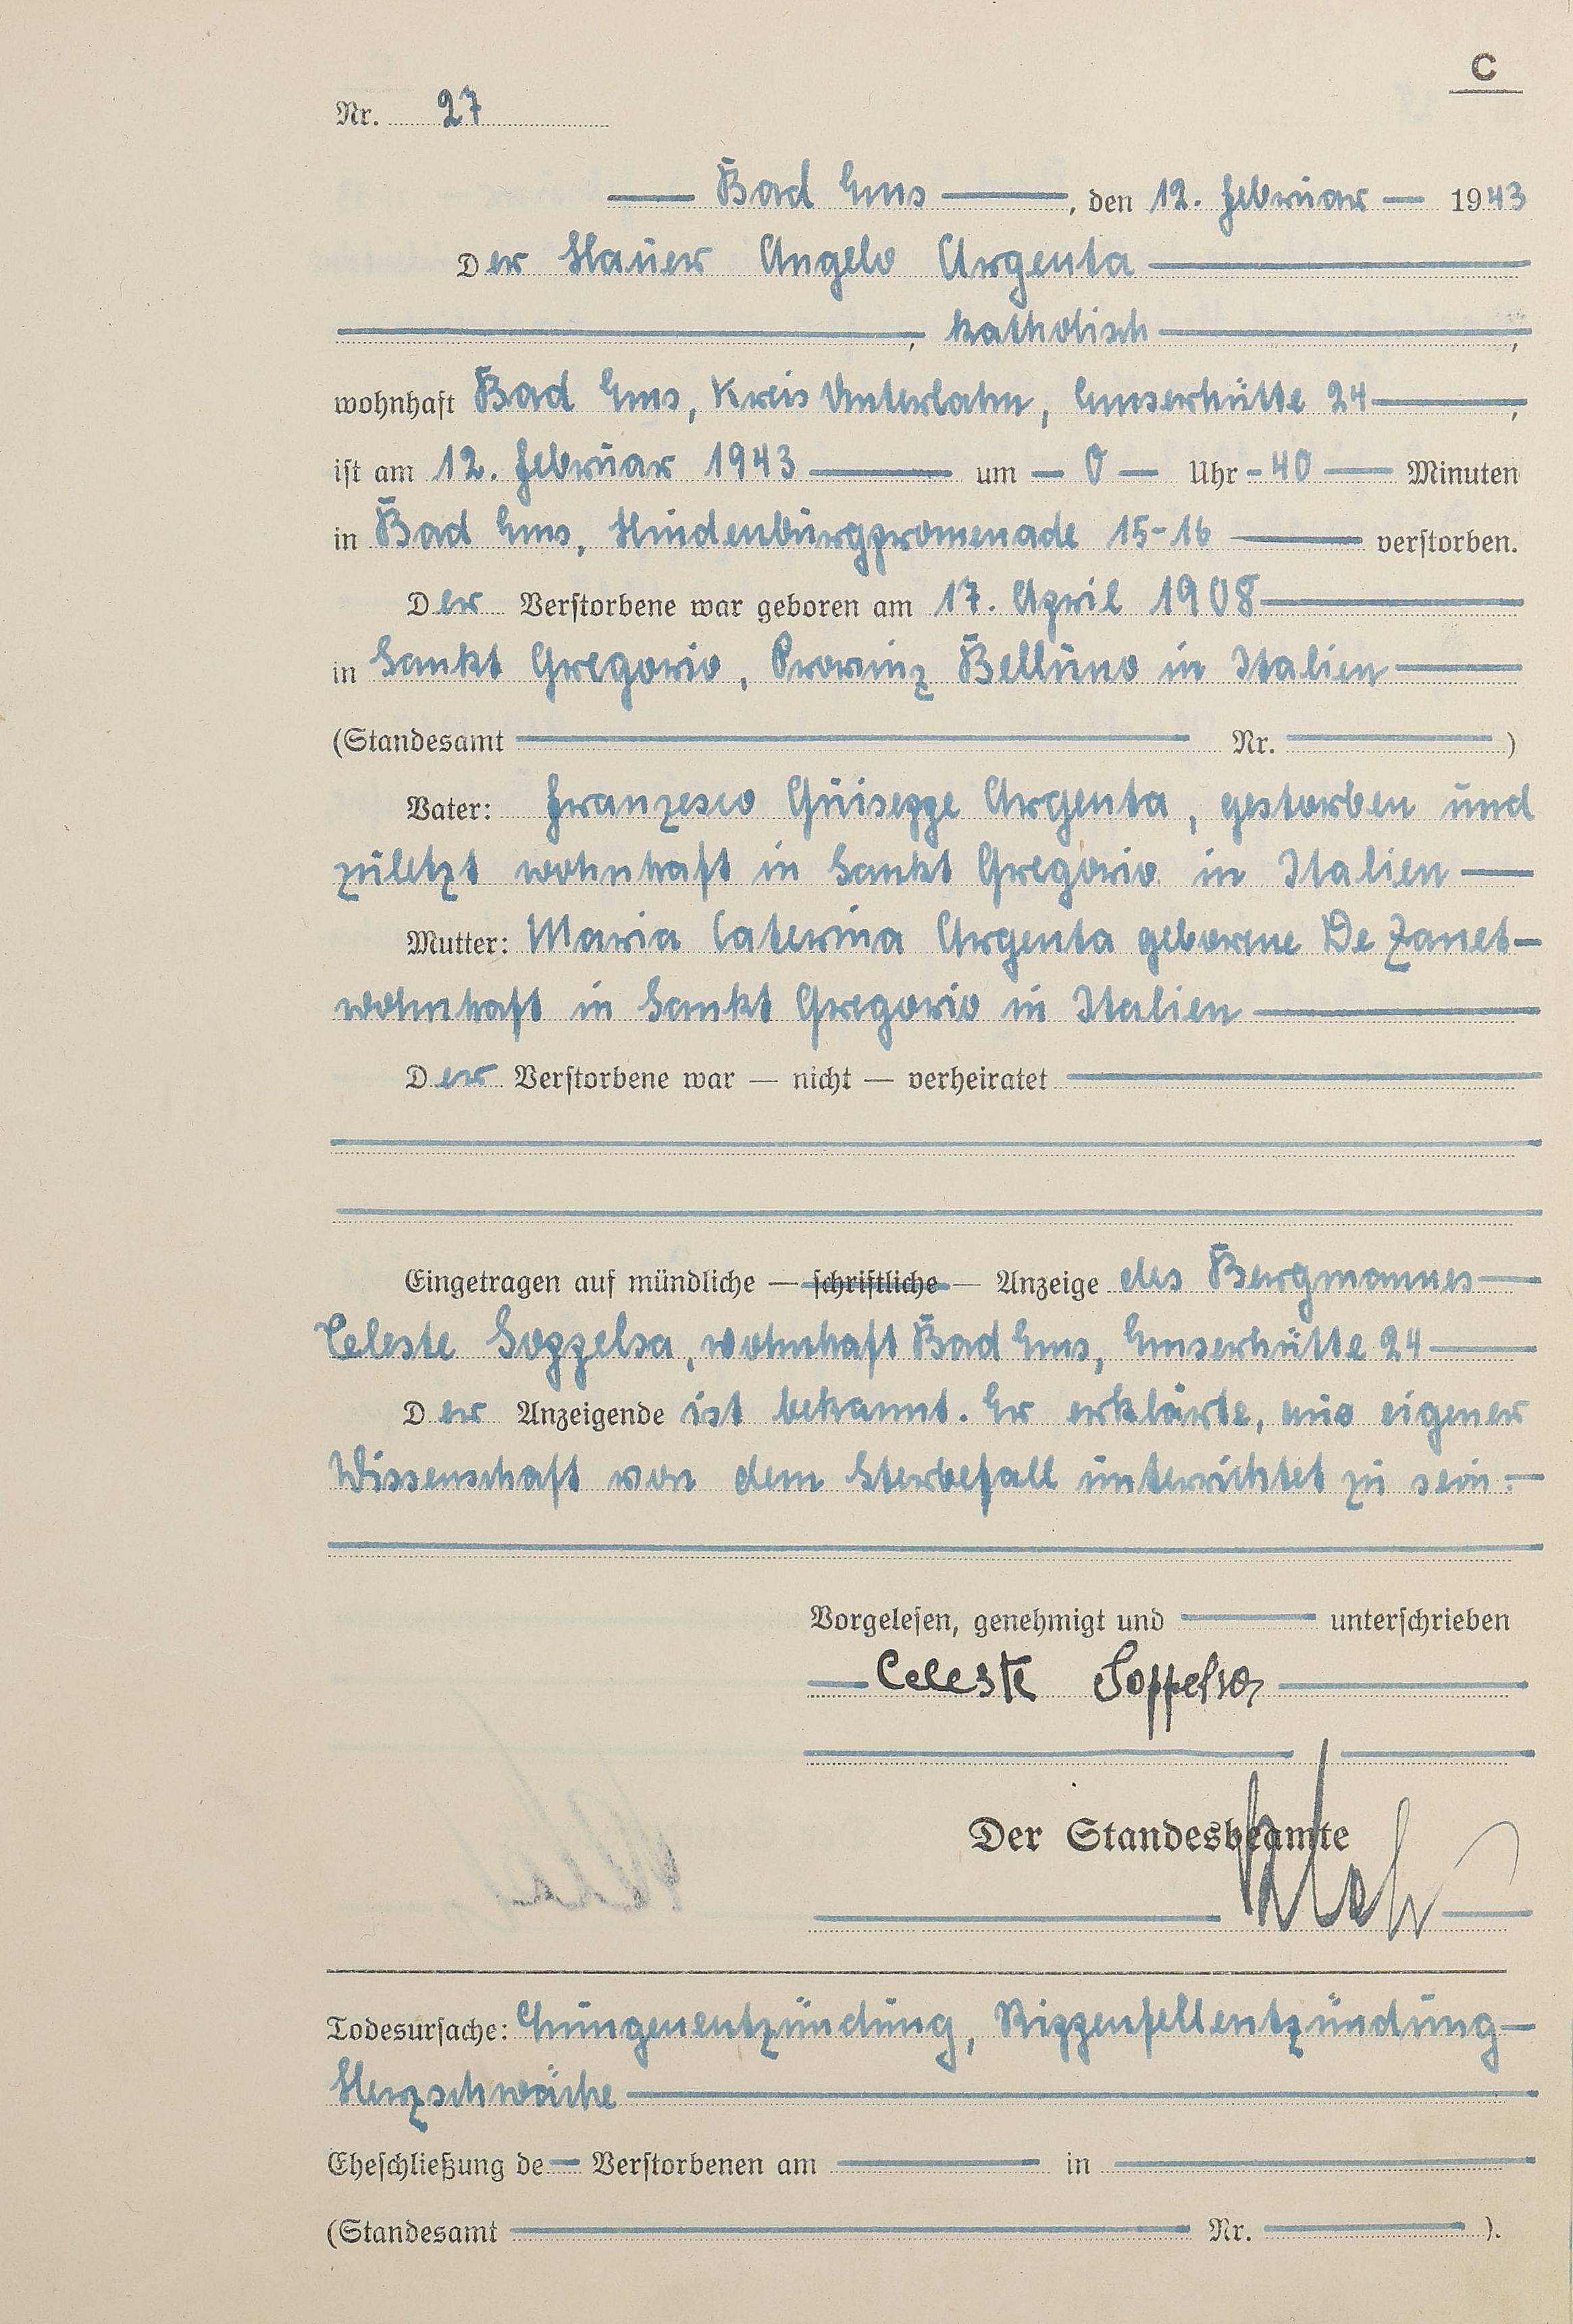 C
Nr. 27
Bad Ems, den 12. Februar 1943
Der Hauer Angelo Argenta
, katholisch,
wohnhaft Bad Ems, Kreis Unterlahn, Emserhütte 24,
ist am 12. Februar 1943 um 0 Uhr 40 Minuten
in Bad Ems, Hindenburgpromenade 15-16 verstorben.
Der Verstorbene war geboren am 17. April 1908
in Sankt Gregorio, Provinz Belluno in Italien
(Standesamt Nr. )
Vater: Franzesco Guiseppe Argenta, gestorben und
zuletzt wohnhaft in Sankt Gregorio in Italien
Mutter: Maria Caterina Argenta geborene De Zanet
wohnhaft in Sankt Gregorio in Italien
Der Verstorbene war — nicht — verheiratet
Eingetragen auf mündliche — schriftliche — Anzeige des Bergmannes
Celeste Soppelsa, wohnhaft Bad Ems, Emserhütte 24
Der Anzeigende ist bekannt. Er erklärte, aus eigener
Wissenschaft von dem Sterbefall unterrichtet zu sein.
Vorgelesen, genehmigt und unterschrieben
Celeste Soppelsa
Der Standesbeamte
Todesursache: Lungenentzündung, Rippenfellentzündung
Herzschwäche
Eheschließung de Verstorbenen am in
(Standesamt Nr. ).